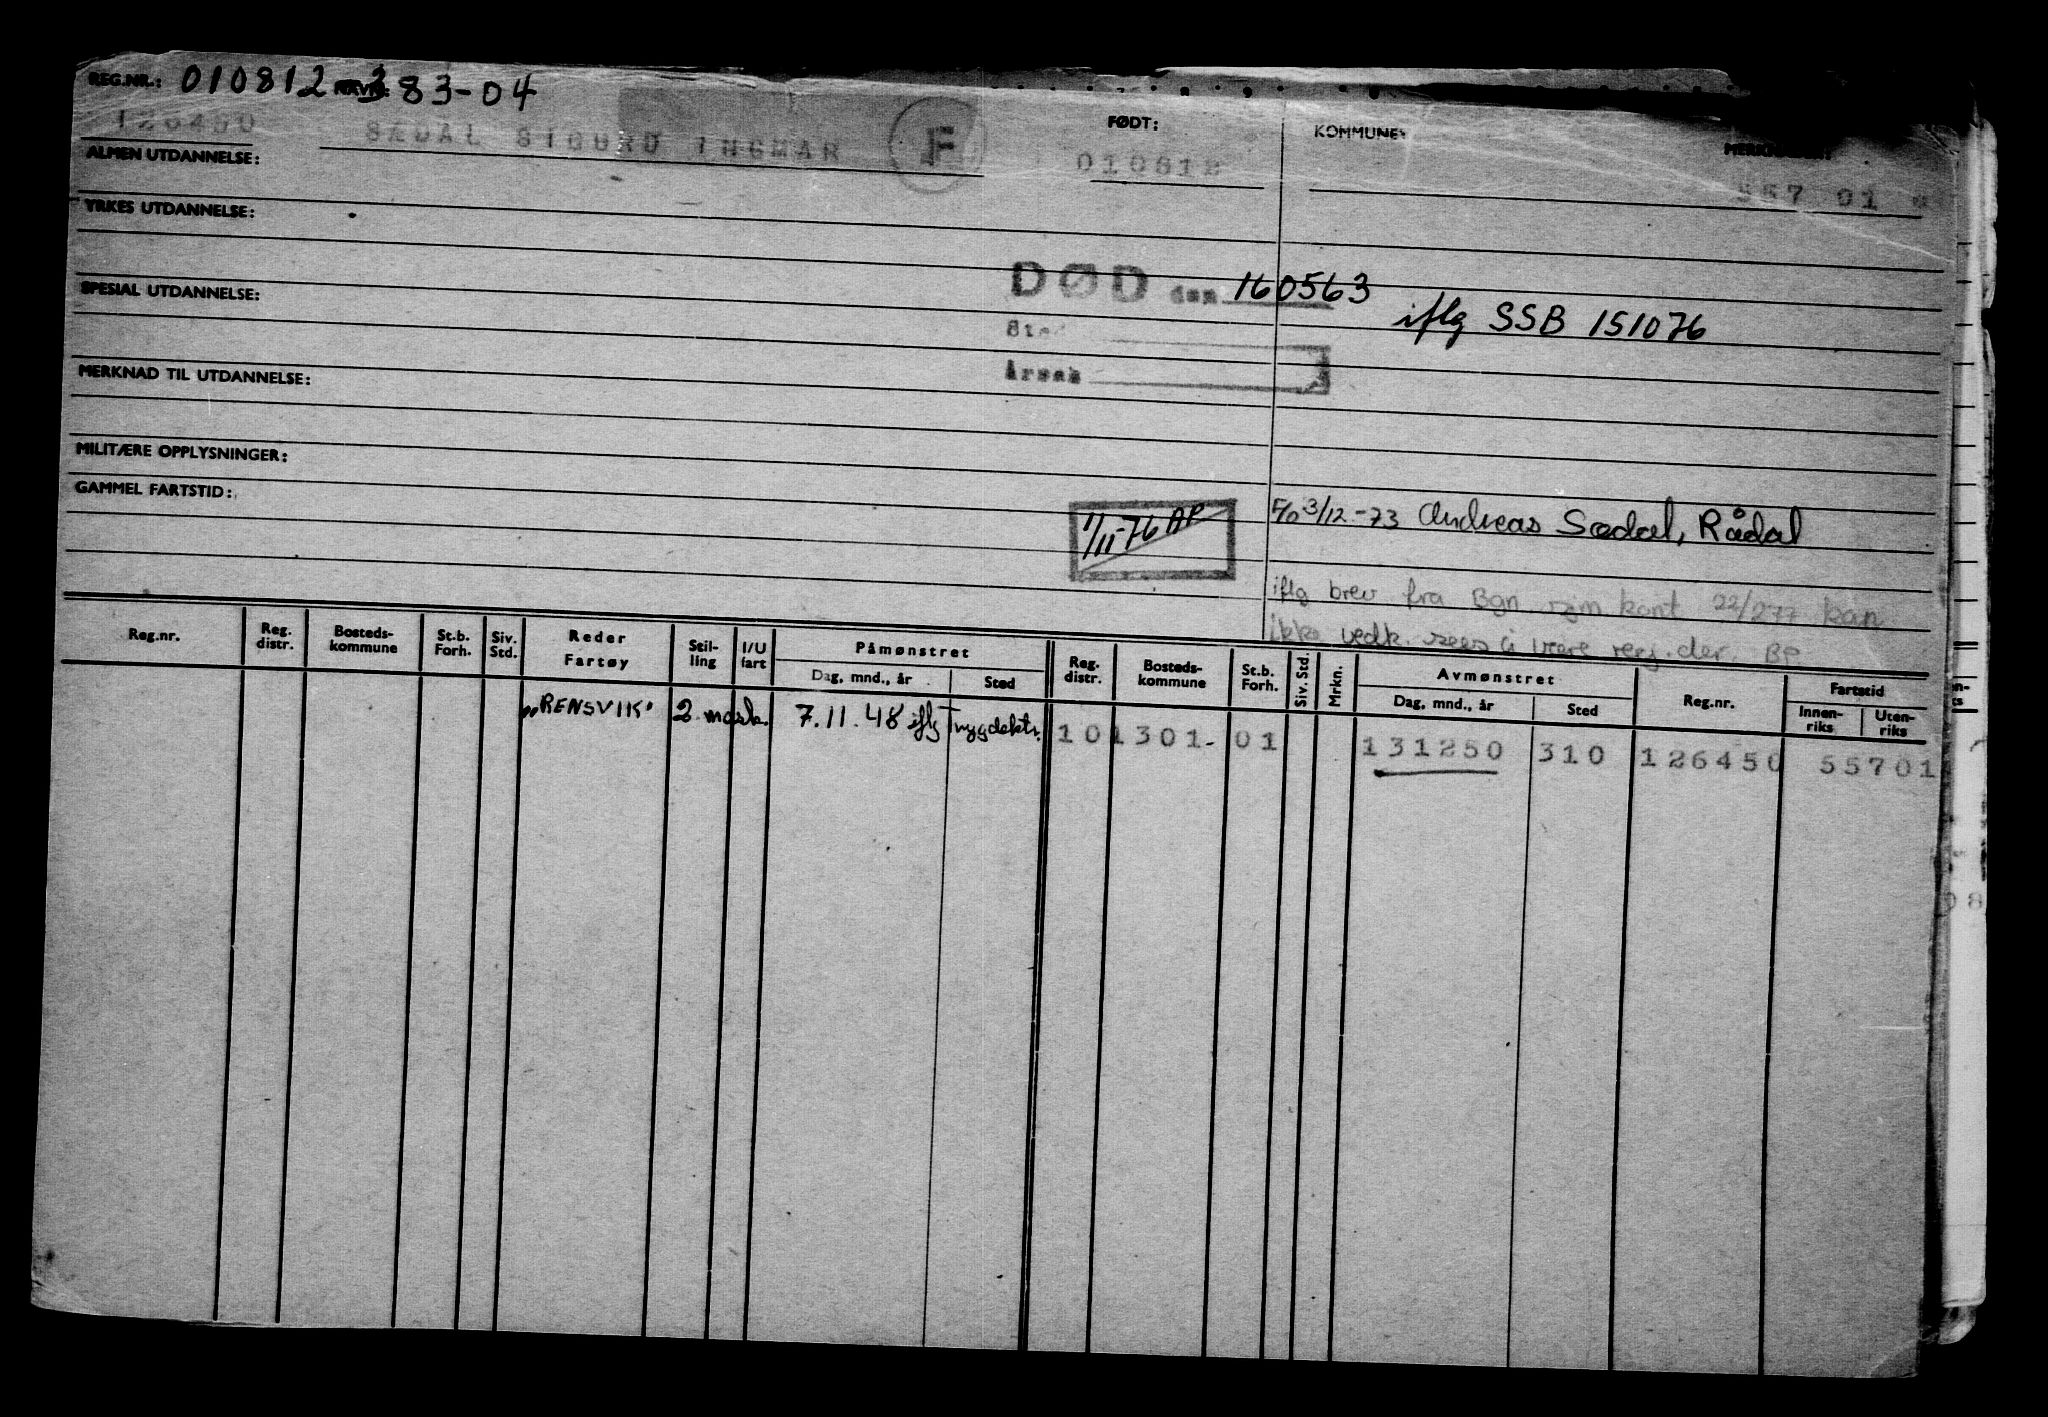 REG.NR.: 010812 383-04 FØDT: KOMMUNE:
126450 SÆDAL SIGURD INGMAR F 010812 557 01
ALMEN UTDANNELSE:
YRKES UTDANNELSE:
DØD den 160563 iflg SSB 151076
SPESIAL UTDANNELSE:
Sted
Årsak
MERKNAD TIL UTDANNELSE:
MILITÆRE OPPLYSNINGER:
GAMMEL FARTSTID:
1/11-76 AP
F/O 3/12-73 Andreas Sædal, Rådal
iflg brev fra Bgn sjm kont 22/2 77 kan
ikke vedk. sees å være reg. der. BP
Reg.nr. Reg. distr. Bosteds-kommune St.b. Forh. Siv. Std. Reder Fartøy Stil-ling I/U fart Påmønstret Dag, mnd., år Sted Reg. distr. Bosteds-kommune St.b. Forh. Siv. Std. Mrkn. Avmønstret Dag, mnd., år Sted Reg.nr. Fartstid Innen-riks Uten-riks
"RENSVIK" 2 mask. 7.11.48 iflg Trygdektr. 10 1301- 01 131250 310 126450 55701